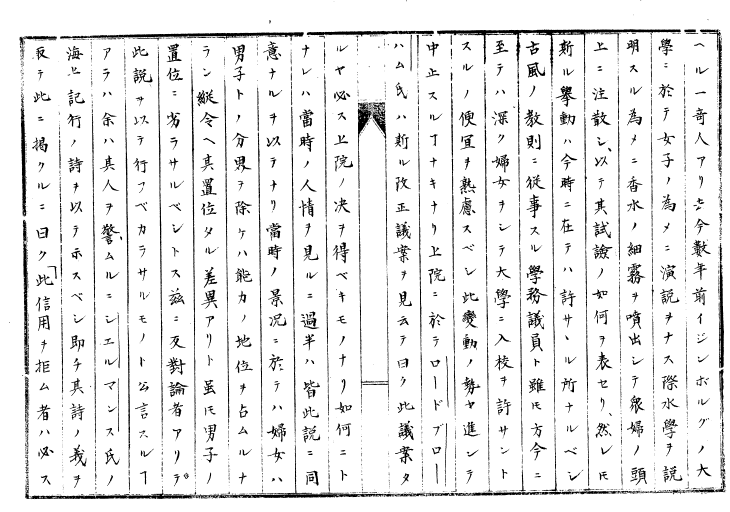 ヘル一奇人アリキ今数年前イジンボルグノ大
學ニ於テ女子ノ為メニ演説ヲナス際水學ヲ説
明スル為メニ香水ノ細霧ヲ噴出シテ衆婦ノ頭
上ニ注散シ以テ其試驗ノ如何ヲ表セリ然レ𪜈
斯ル擧動ハ今時ニ在テハ許サヽル所ナルベシ
古風ノ教則ニ從事スル學務議員ト雖𪜈方今ニ
至テハ深ク婦女ヲシテ大學ニ入校ヲ許サント
スルノ便宜ヲ熟慮スベシ此變動ノ勢ヤ進シテ
中止スルヿナキナリ上院ニ於テロードブロー
ハム氏ハ斯ル改正議案ヲ見云テ曰ク此議案タ
ルヤ必ス上院ノ决ヲ得ベキモノナリ如何ニト
ナレハ當時ノ人情ヲ見ルニ過半ハ皆此説ニ同
意ナルヲ以テナリ當時ノ景況ニ於テハ婦女ハ
男子トノ分界ヲ除ケハ能力ノ地位ヲ占ムルナ
ラン縦令ヘ其置位タル差異アリト虽𪜈男子ノ
置位ニ劣ラサルベントス茲ニ反對論者アリテ
此説ヲ以テ行フベカラサルモノト公言スルヿ
アラハ余ハ其人ヲ警ムルニシエルマンス氏ノ
海上記行ノ詩ヲ以テ示スベシ即チ其詩ノ義ヲ
取テ此ニ掲クルニ曰ク「此信用ヲ拒ム者ハ必ス